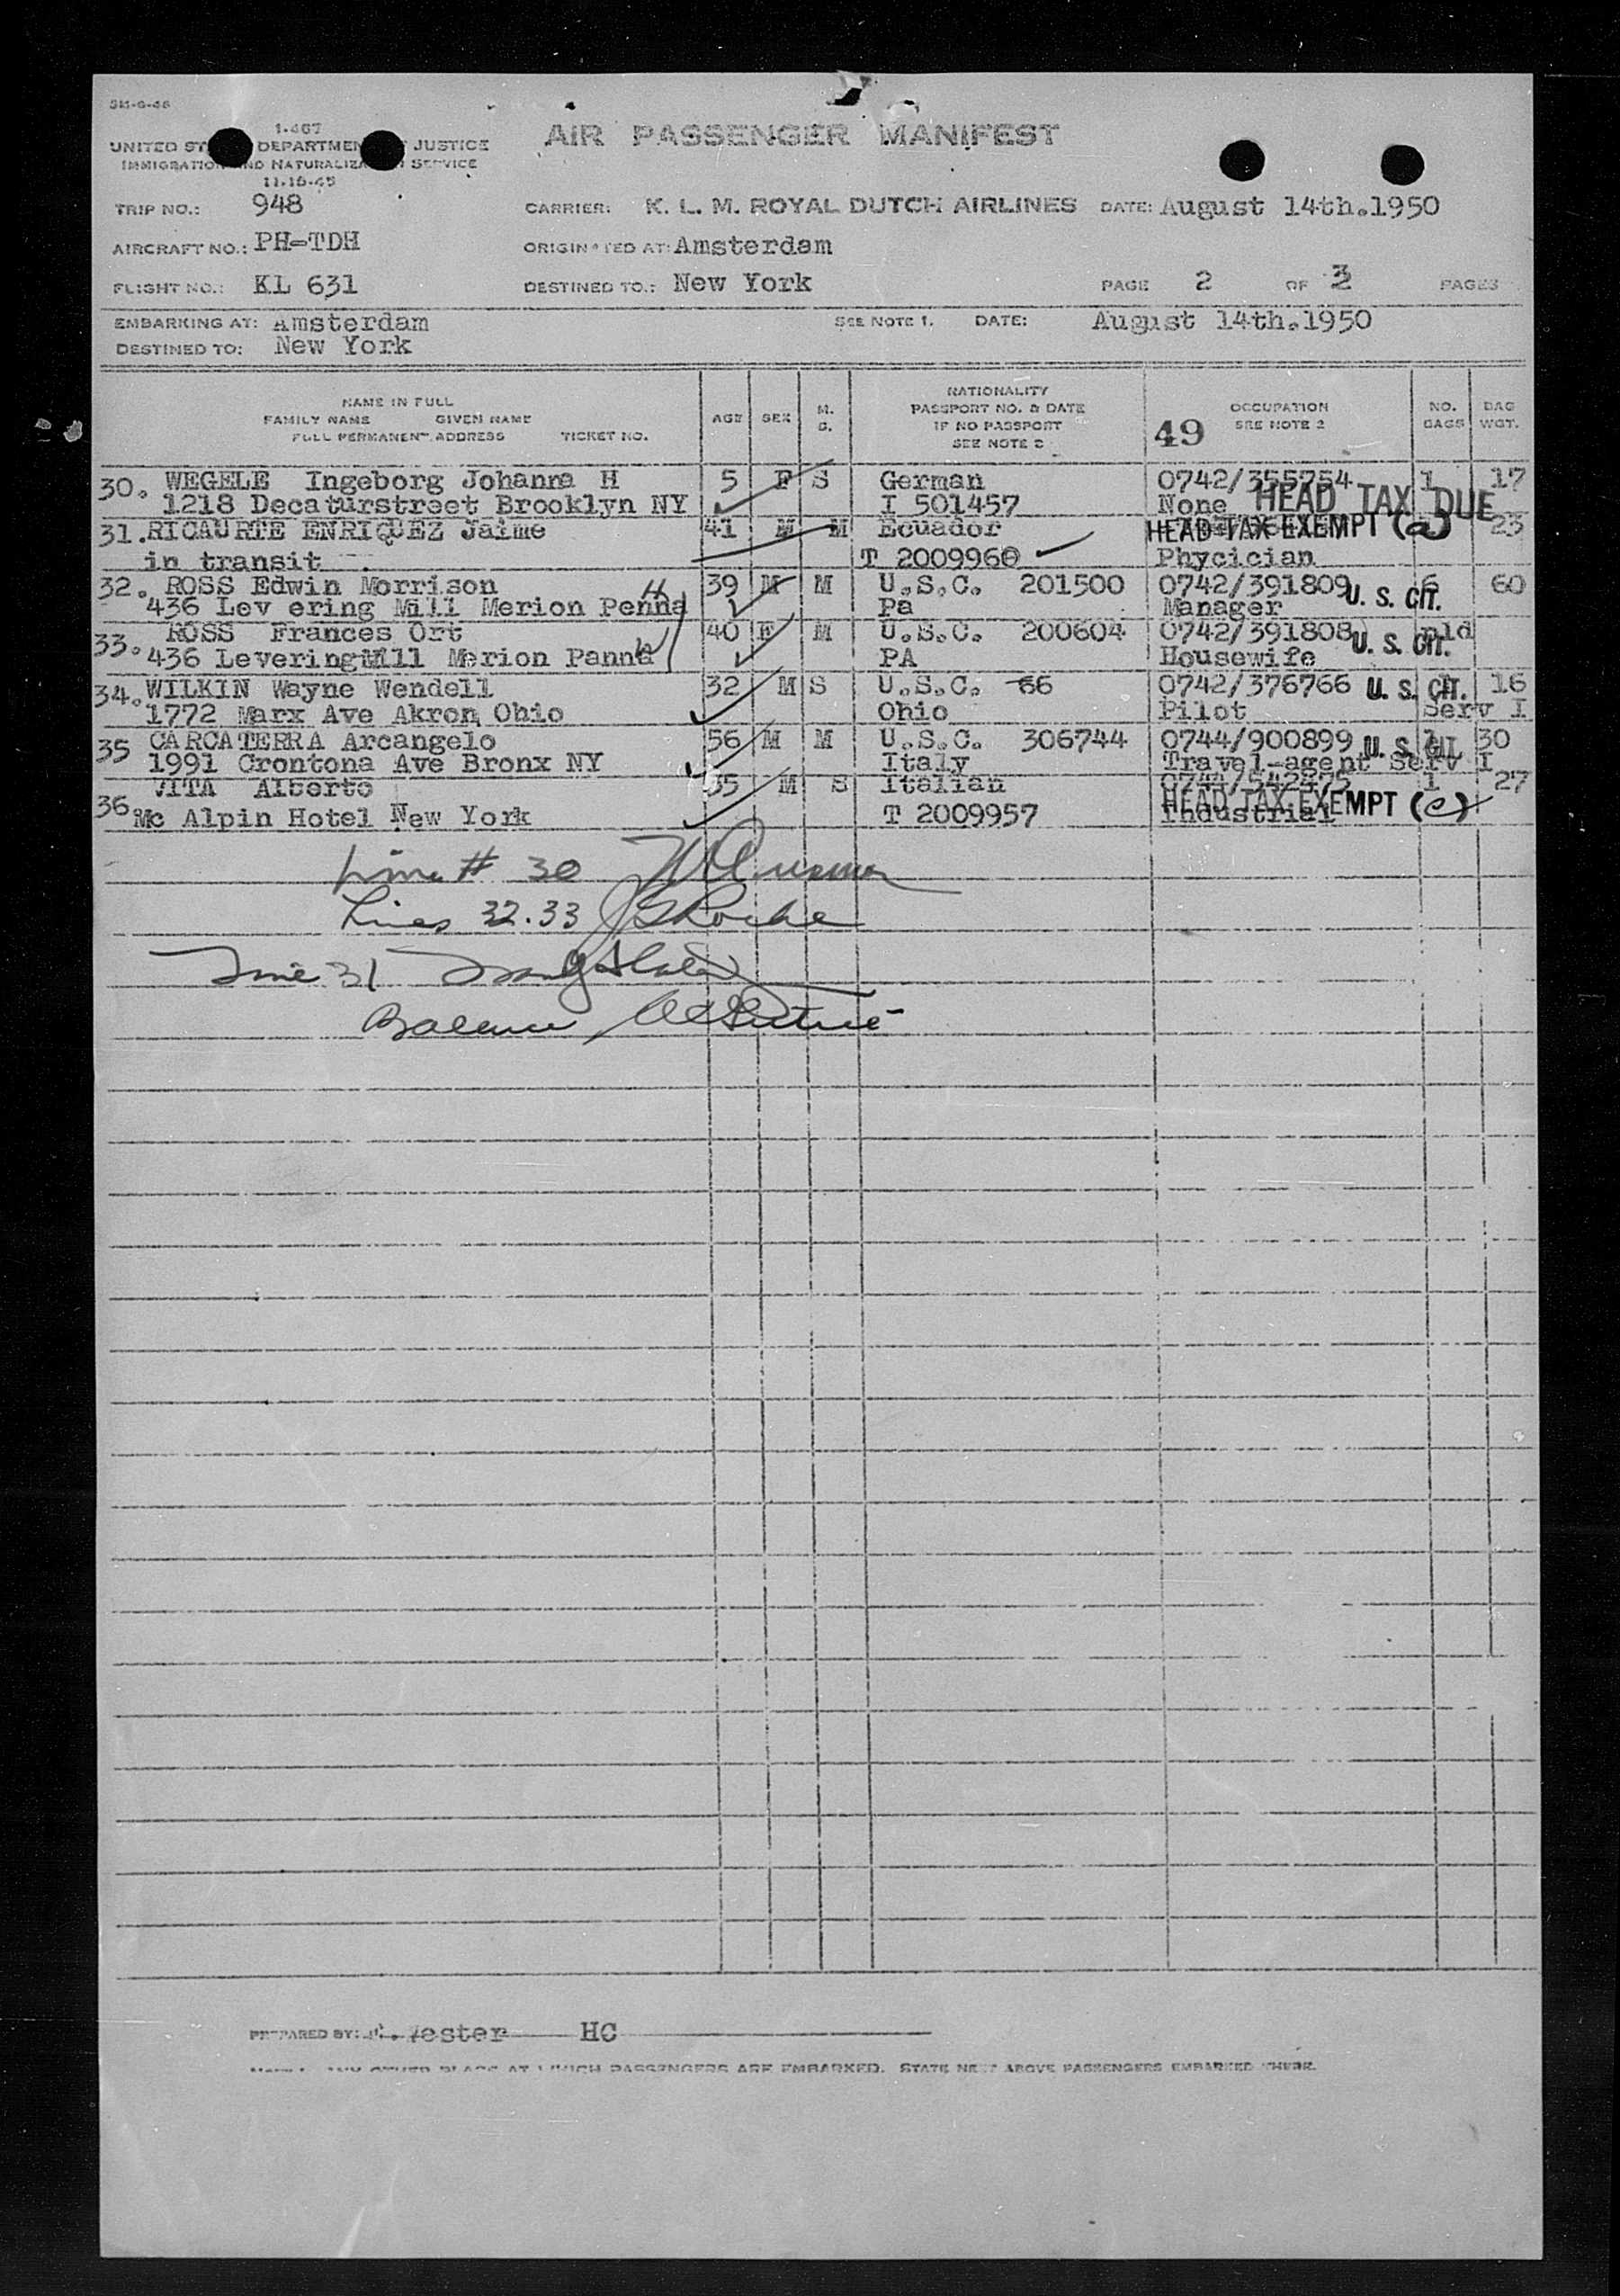 1-467
UNITED ST DEPARTMEN JUSTICE
IMMIGRATION ND NATURALIZA SERVICE
11-16-45
AIR PASSENGER MANIFEST
TRIP NO.: 948 CARRIER: K. L. M. ROYAL DUTCH AIRLINES DATE: August 14th.1950
AIRCRAFT NO.: PH-TDH ORIGINATED AT: Amsterdam
FLIGHT NO.: KL 631 DESTINED TO.: New York PAGE 2 OF 3 PAGES
EMBARKING AT: Amsterdam SEE NOTE 1. DATE: August 14th.1950
DESTINED TO: New York
NAME IN FULL
FAMILY NAME GIVEN NAME
FULL PERMANENT ADDRESS TICKET NO.
AGE SEX M. S.
NATIONALITY
PASSPORT NO. & DATE
IF NO PASSPORT
SEE NOTE
49 OCCUPATION
SEE NOTE 2
NO. BAGS BAG WGT.
30. WEGELE Ingeborg Johanna H 5 F S German 0742/355754 1 17
1218 Decaturstreet Brooklyn NY I 501457 None HEAD TAX DUE
31. RICAURTE ENRIQUEZ Jaime 41 M M Ecuador HEAD TAX EXEMPT (a) 23
in transit T 2009960 Phycician
32. ROSS Edwin Morrison 39 M M U.S.C. 201500 0742/391809 U. S. CIT. 6 60
436 Lev ering Mill Merion Penna Pa Manager
33. ROSS Frances Ort 40 F M U.S.C. 200604 0742/391808 U. S. CIT. pld
436 LeveringMill Merion Panna PA Housewife
34. WILKIN Wayne Wendell 32 M S U.S.C. 66 0742/376766 U. S. CIT. 16
1772 Marx Ave Akron Ohio Ohio Pilot Serv I
35 CARCATERRA Arcangelo 56 M M U.S.C. 306744 0744/900899 U. S. CIT. 1 30
1991 Crontona Ave Bronx NY Italy Travel-agent Serv I
36. VITA Alberto 35 M S Italian 0744/542475 1 27
Mc Alpin Hotel New York T 2009957 Industrial HEAD TAX EXEMPT (c)
Line # 30
Lines 32.33 Roche
Line 31
Balance
PREPARED BY: ester HC
ANY OTHER PLACE AT WHICH PASSENGERS ARE EMBARKED. STATE NEXT ABOVE PASSENGERS EMBARKED THERE.